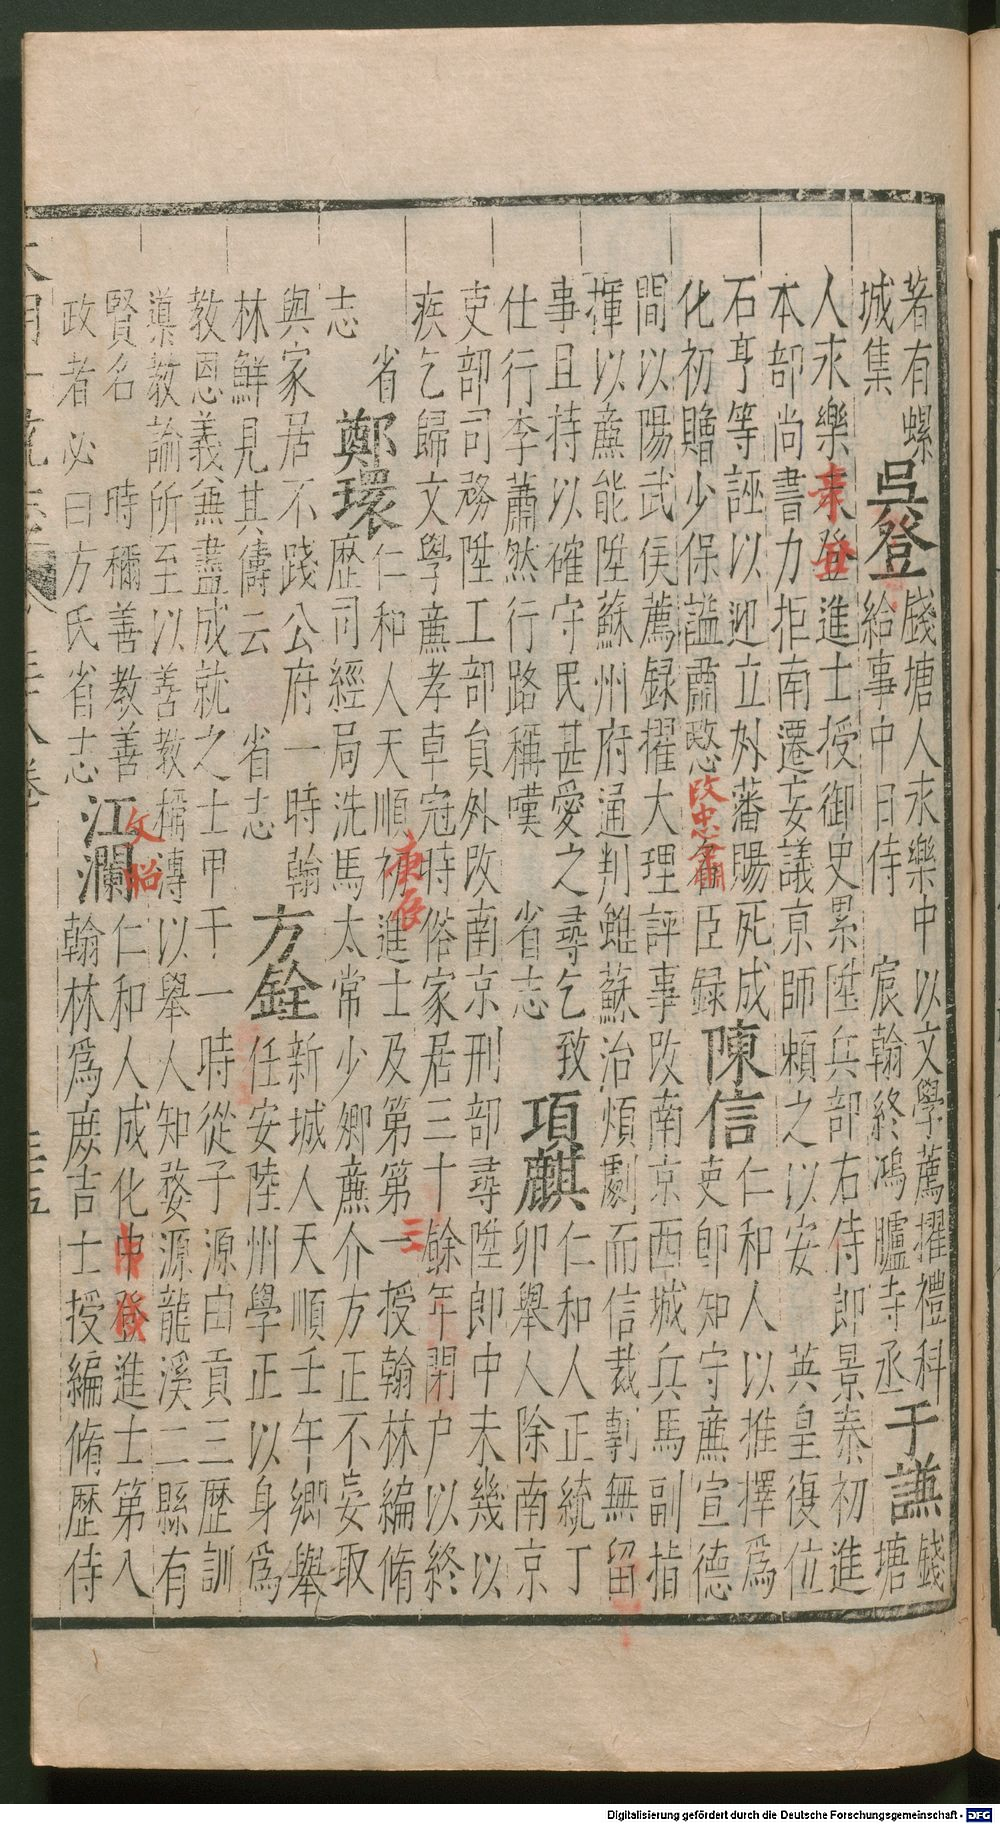 著有螺
城集
吳登
錢塘人永樂中以文學薦擢禮科
給事中日侍　宸翰終鴻臚寺丞
于謙
錢
塘
人永樂末登進士授御史累陞兵部右侍郎景泰初進
辛丑
本部尚書力拒南遷妄議京師頼之以安　英皇復位
石亨等誣以迎立外藩賜死成
化初贈少保謚肅愍名臣録
改忠肅
陳信
仁和人以推擇爲
吏郎知守廉宣德
間以陽武侯薦録擢大理評事改南京西城兵馬副指
揮以廉能陞蘇州府通判雖蘇治煩劇而信裁剸無留
事且持以確守民甚愛之尋乞致
仕行李蕭然行路稱嘆　省志
項麒
仁和人正統丁
卯舉人除南京
吏部司務陞工部員外改南京刑部尋陞郎中未幾以
疾乞歸文學廉孝卓冠時俗家居三十餘年閉户以終
省
志
鄭環
仁和人天順初進士及第第一授翰林編脩
庚辰
三
歷司經局洗馬太常少卿廉介方正不妄取
與家居不踐公府一時翰
林鮮見其儔云　省志
方銓
新城人天順壬午鄉舉
任安陸州學正以身爲
教恩義無盡成就之士甲于一時從子源由貢三歷訓
導教諭所至以善教稱溥以舉人知婺源龍溪二縣有
賢名　時稱善教善
政者必曰方氏省志
江瀾
文昭
仁和人成化中登進士第入
戊戌
翰林爲庶吉士授編脩歷侍
Digitalisierung gefördert durch die Deutsche Forschungsgemeinschaft - DFG